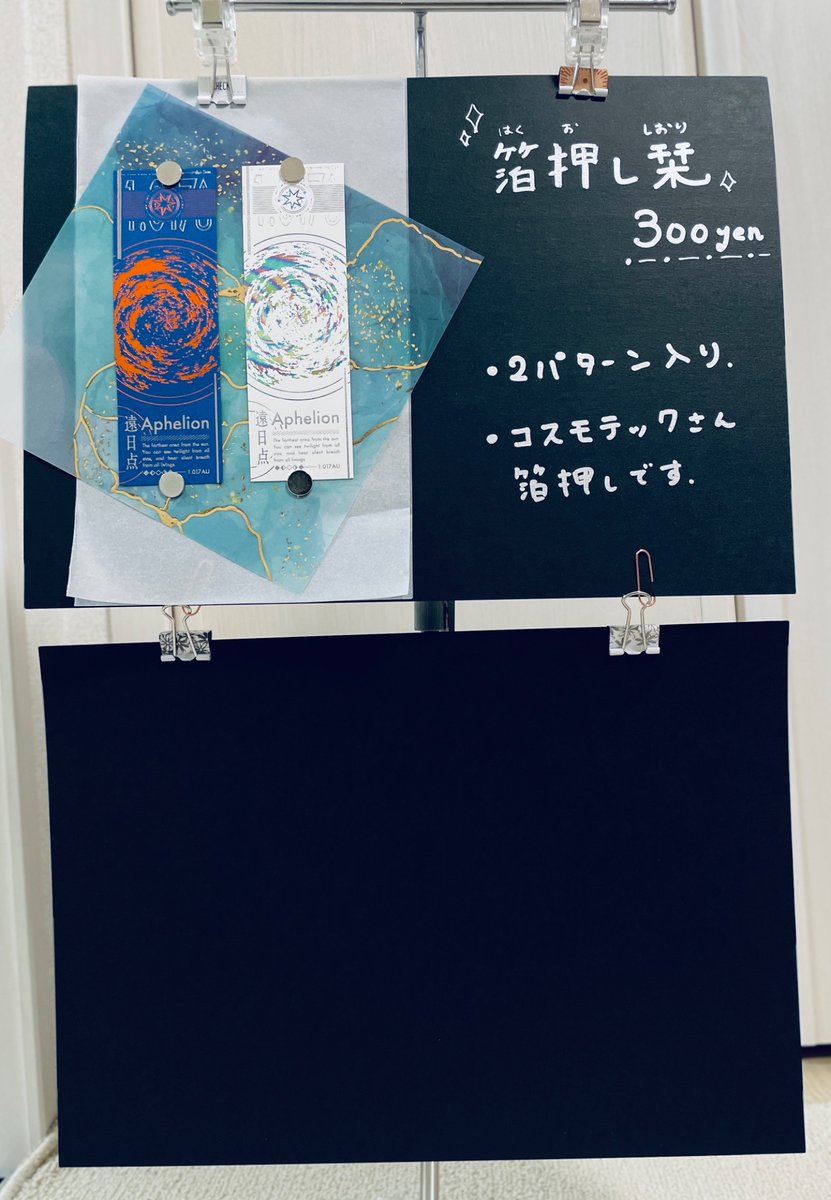 CHECK
1.0170
遠日点
Aphelion
The farthest area from the sun.
You can see twilight from all
stars, and hear silent breath
from all livings.
1.017AU
Aphelion
遠日点
The farthest area from the sun.
You can see twilight from all
stars, and hear silent breath
from all livings.
1.017AU
はく お しおり
箔押し栞
300yen
・2パターン入り.
・コスモテックさん
箔押しです.